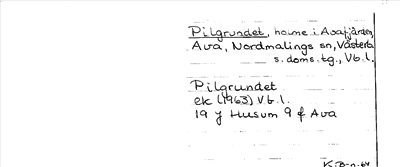 Pilgrundet, holme i Avafjärden,
Ava, Nordmalings sn, Västerb.
s. doms. tg., Vb. l.
Pilgrundet
ek (1963) Vb. l.
19 J Husum 9 f Ava
K.B-n. 64